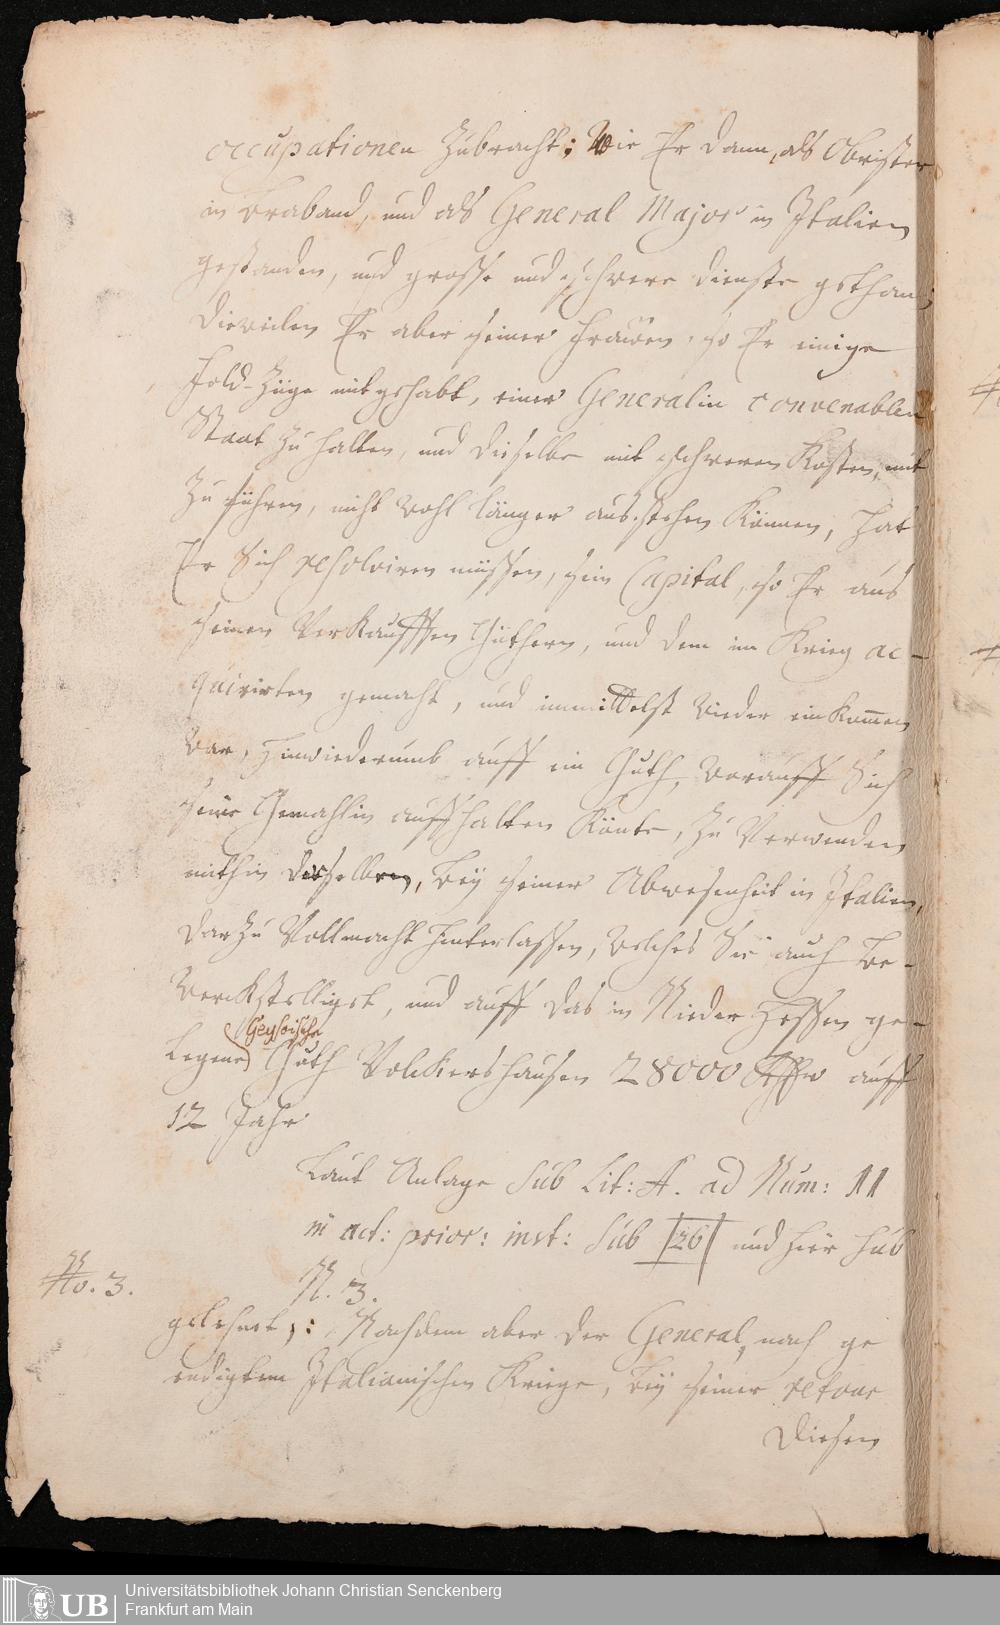 occupationen Zubracht; Wie Er dann, als Obrister
in Braband, und als General Major in Italien
gestanden, und grosse und schwere dienste gethan;
Dieweilen Er aber seiner Frauen, so Er einige
Feld-Züge mitgehabt, einer Generalin convenablen
Staat zu halten, und dieselbe mit schweren Kosten, mit
zu führen, nicht wohl länger ausstehen können, hat
Er Sich resolviren müssen, sein Capital, so Er aus
seinen Verkaufften Güthern, und dem im Krieg ac-
quirirten gemacht, und immittelst wieder einkom̄en
war, hinwiederumb auff ein Guth, worauff Sich
seine Gemahlin auffhalten könte, zu Verwenden
mithin derselben, bey seiner Abwesenheit in Italien,
darzu Vollmacht hinterlassen, welches Sie auch be-
werckstelliget, und auff das in Nieder Hessen ge-
Geysoische
legene Guth Volckershausen 28000 Rthlr auff
12 Jahr
Laut Anlage sub Lit: A. ad Num: 11
in act: prior: inst: sub [26] und hier sub
No. 3.
N. 3.
gelehnet,: Nachdem aber der General, nach ge
endigtem Italianischen Kriege, bey seiner retour
diesen
UB
Universitätsbibliothek Johann Christian Senckenberg
Frankfurt am Main